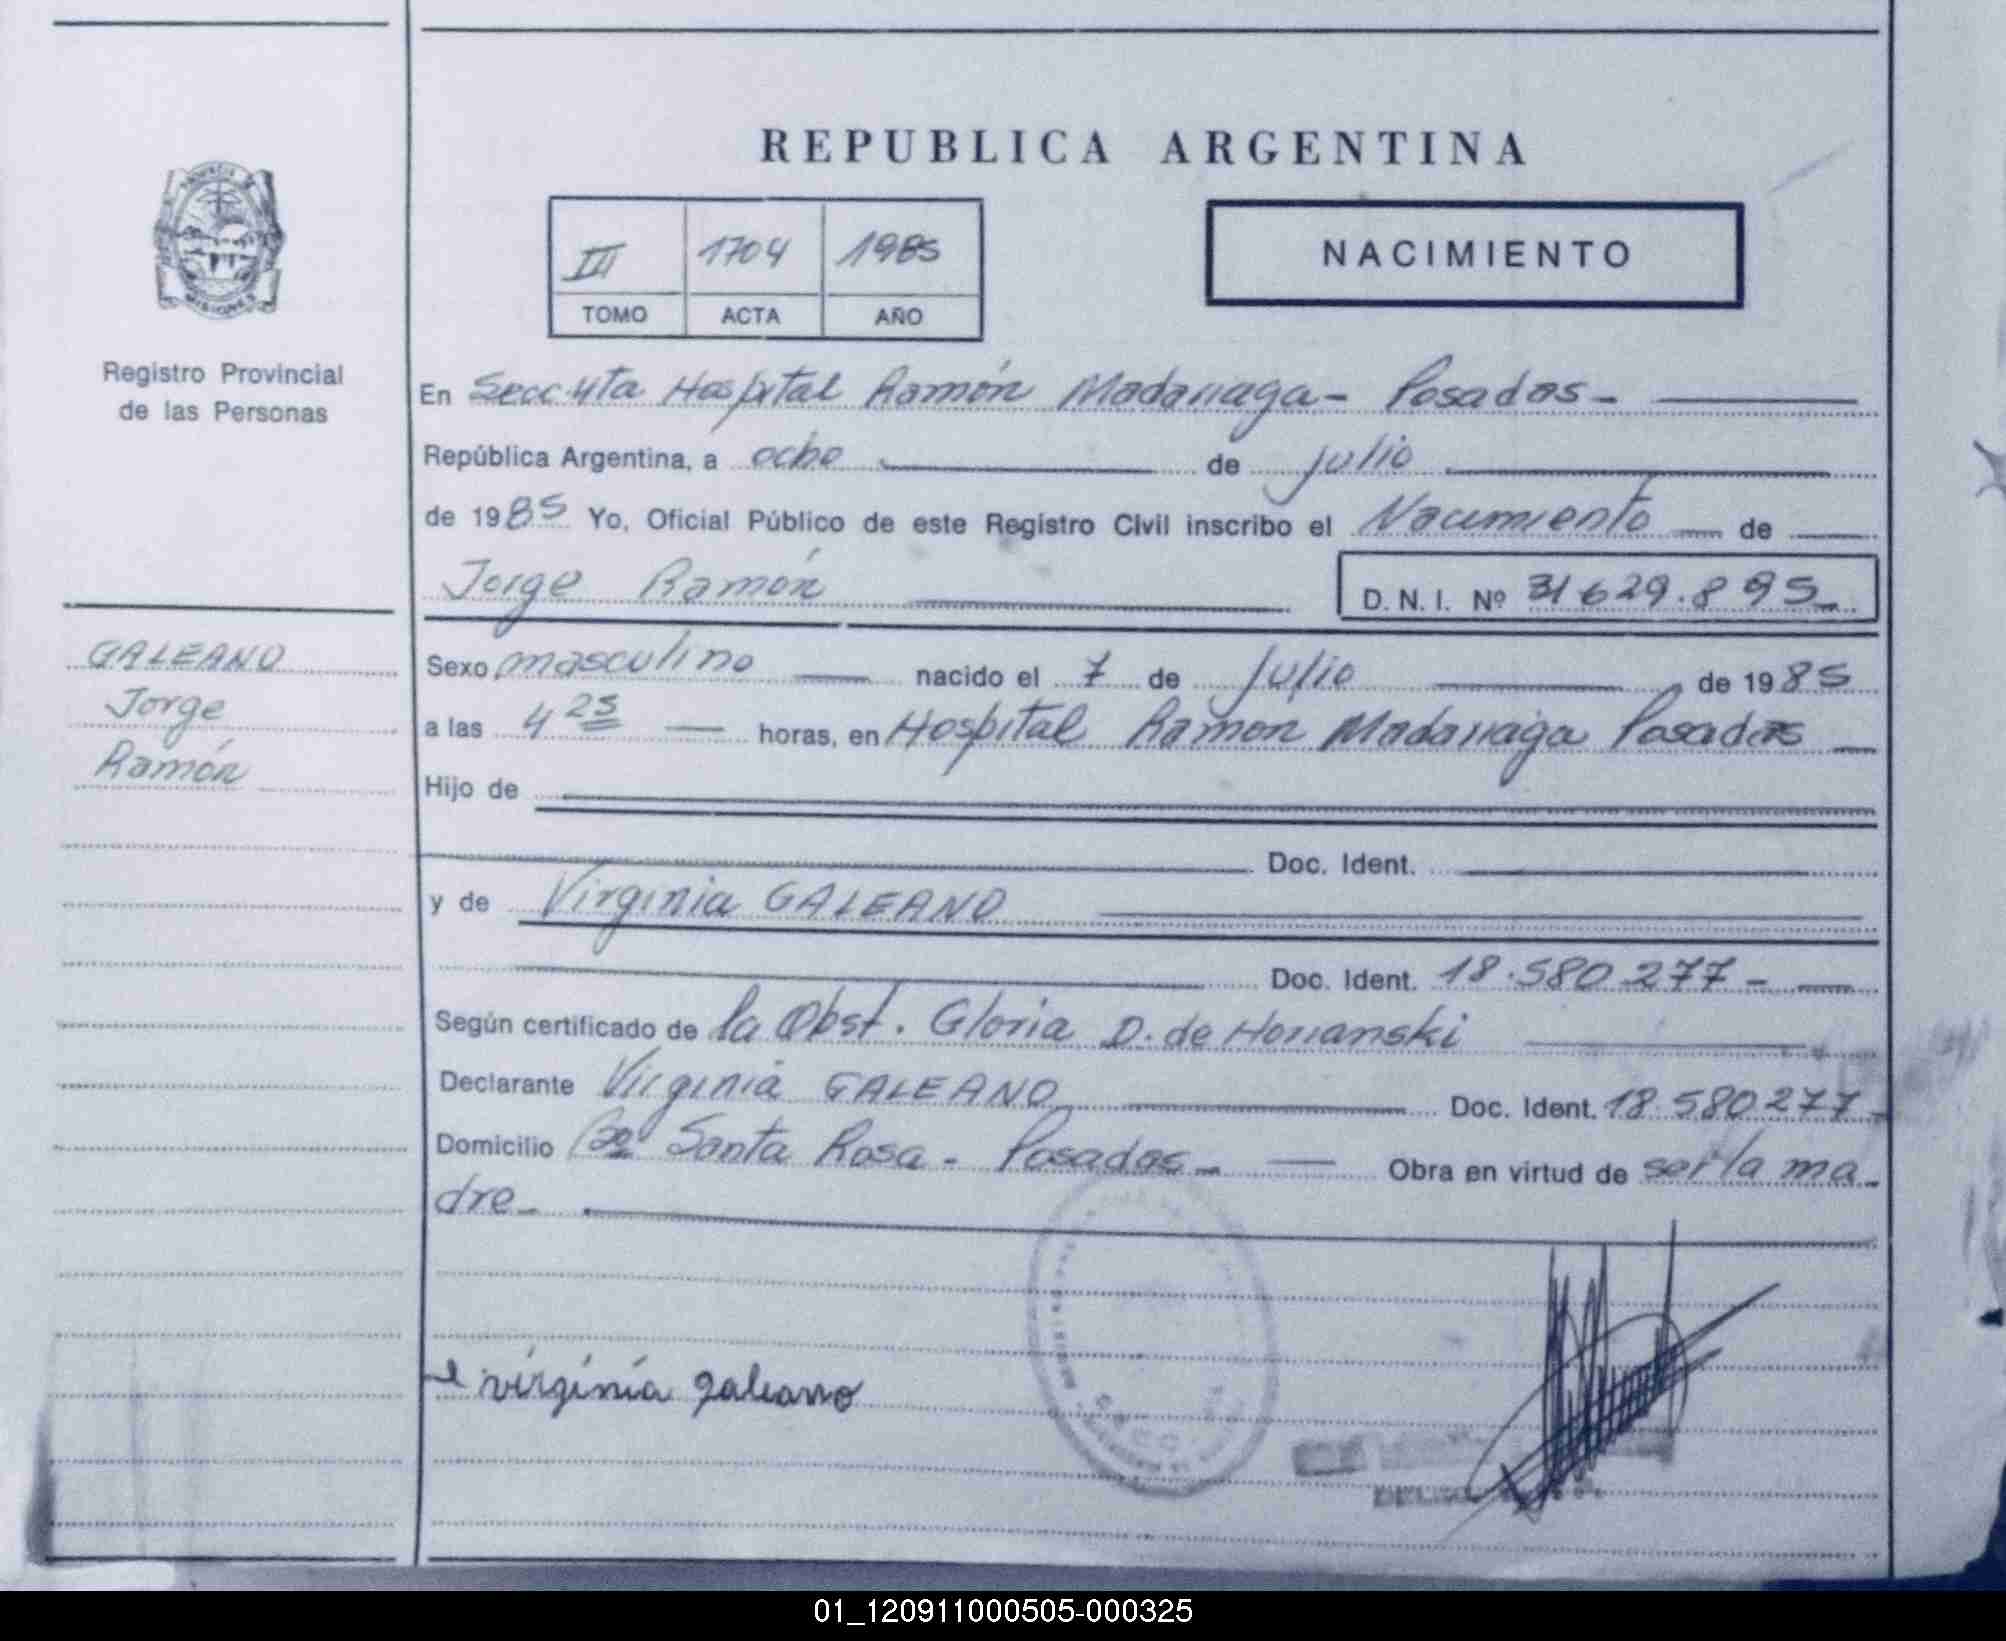 REPUBLICA ARGENTINA
III 1704 1985
TOMO ACTA AÑO
NACIMIENTO
MISIONES
Registro Provincial
de las Personas
En Secc 4ta Hospital Ramón Madariaga - Posadas -
República Argentina, a ocho de julio
de 1985 Yo, Oficial Público de este Registro Civil inscribo el Nacimiento de
Jorge Ramón D.N.I. Nº 31 629.895
GALEANO
Jorge
Ramón
Sexo masculino nacido el 7 de Julio de 1985
a las 4 25 horas, en Hospital Ramon Madariaga Posadas
Hijo de
Doc. Ident.
y de Virginia GALEANO
Doc. Ident. 18.580.277 -
Según certificado de la Obst. Gloria D. de
Declarante Virginia GALEANO Doc. Ident. 18.580277 -
Domicilio Bº Santa Rosa - Posadas - Obra en virtud de ser la ma-
dre -
virginia galeano
01_120911000505-000325